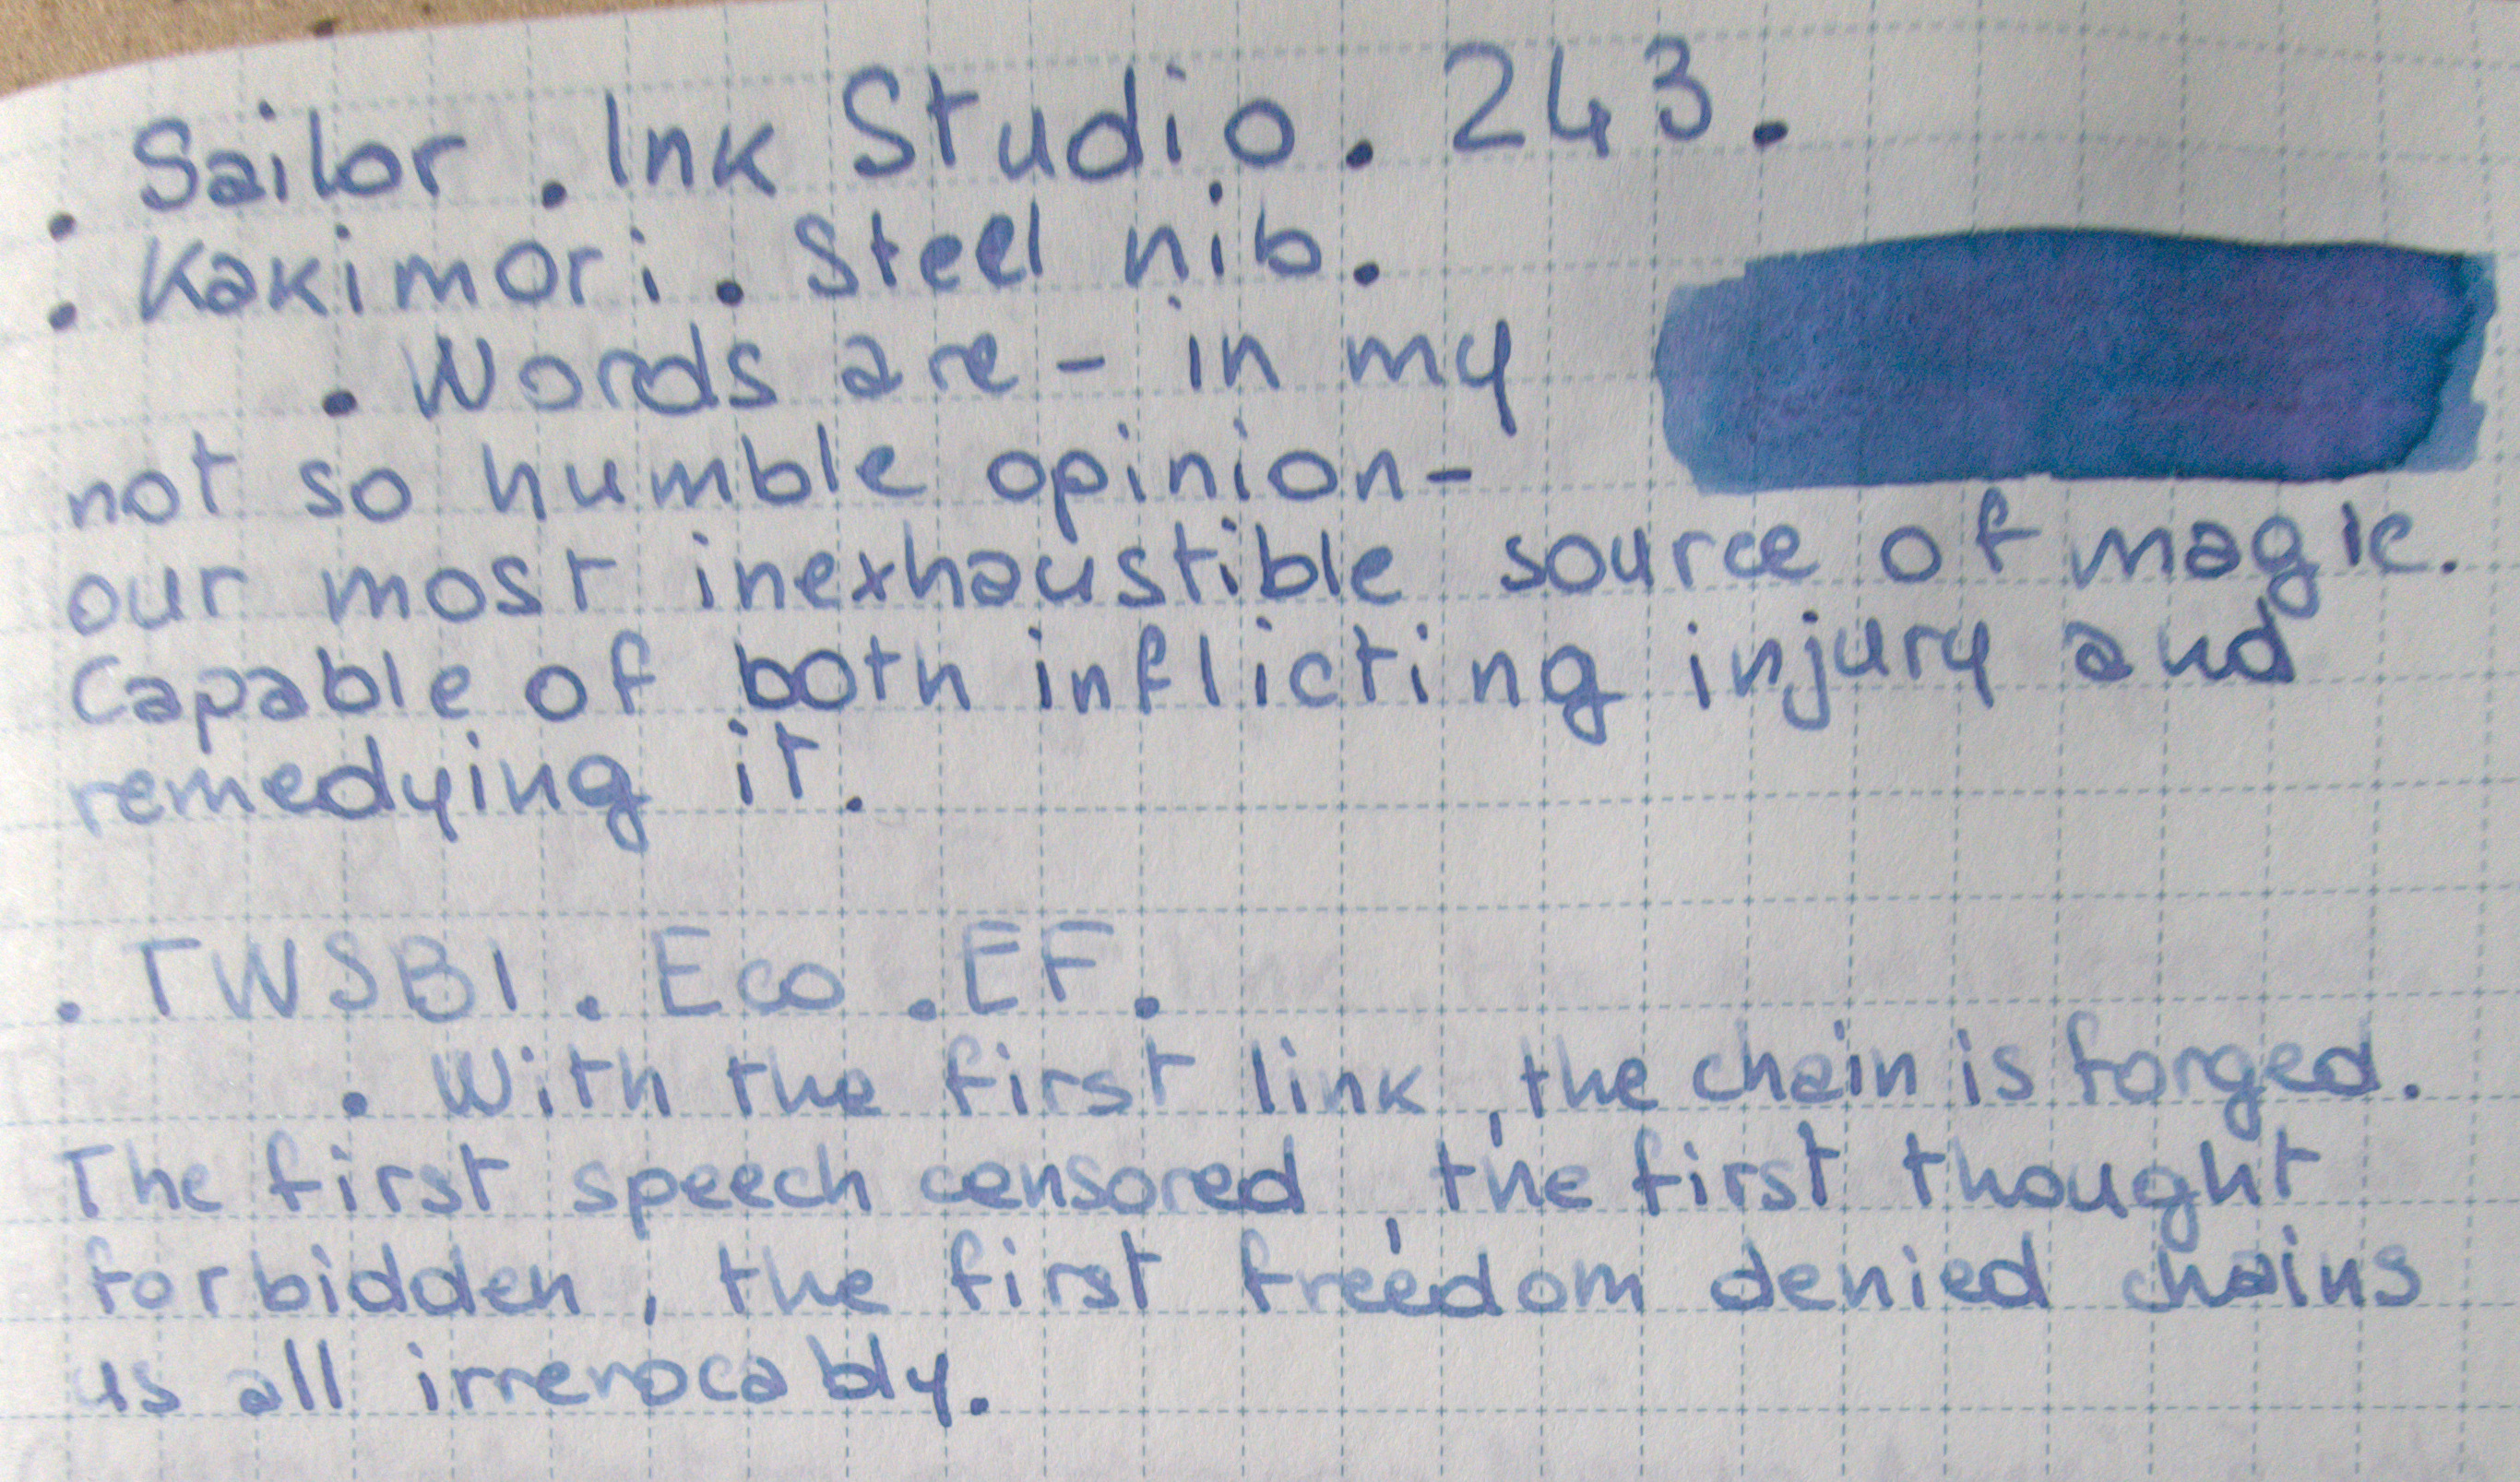 . Sailor . Ink Studio . 243 .
. Kakimori . Steel nib .
. Words are - in my
not so humble opinion -
our most inexhaustible source of magic.
Capable of both inflicting injury and
remedying it.
. TWSBI . Eco . EF .
. With the first link, the chain is forged.
The first speech censored, the first thought
forbidden, the first freedom denied chains
us all irrevocably.